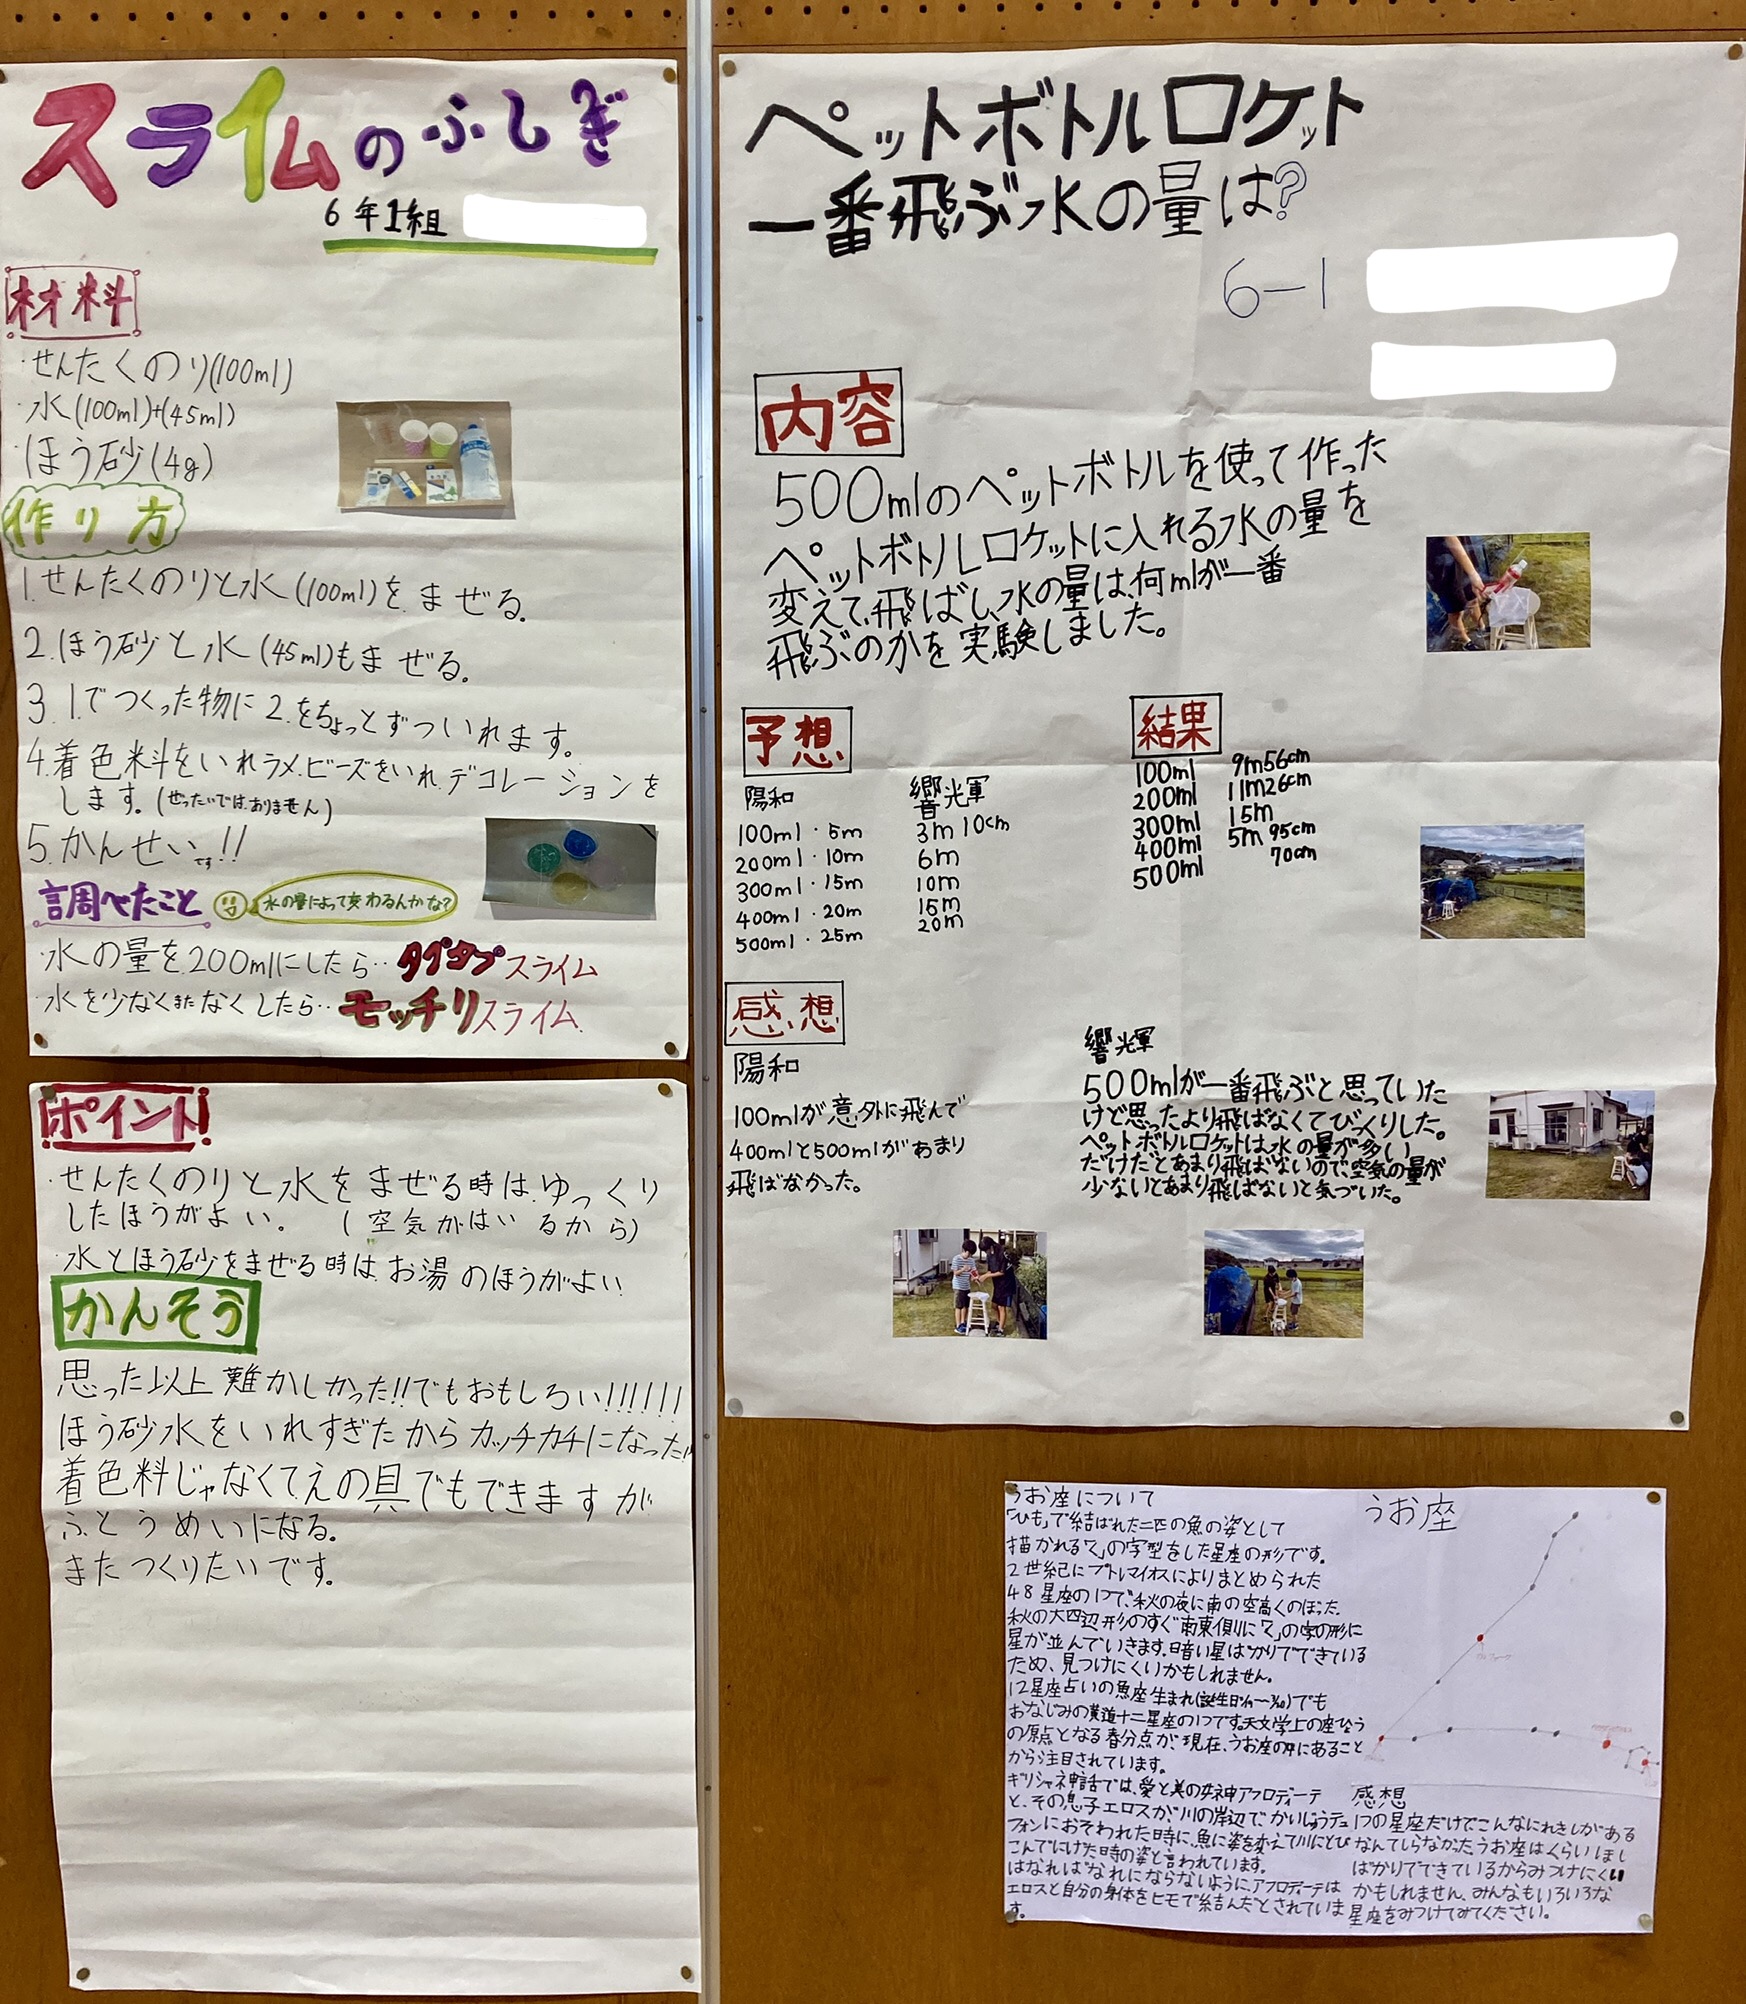 スライムのふしぎ
6年1組
材料
・せんたくのり(100ml)
・水(100ml)+(45ml)
・ほう砂(4g)
作り方
1.せんたくのりと水(100ml)をまぜる。
2.ほう砂と水(45ml)もまぜる。
3.1.でつくった物に2.をちょっとずついれます。
4.着色料をいれラメ.ビーズをいれデコレーションを
します。(ぜったいではありません)
5.かんせいです!!
調べたこと 水の量によって変わるんかな?
・水の量を200mlにしたら‥タプタプスライム
・水を少なくまたなくしたら‥モッチリスライム
ポイント!
・せんたくのりと水をまぜる時は、ゆっくり
したほうがよい。 (空気がはいるから)
・水とほう砂をまぜる時は、お湯のほうがよい
かんそう
思った以上難かしかった!!でもおもしろい!!!!!!
ほう砂水をいれすぎたからカッチカチになった!!
着色料じゃなくて、えの具でもできますが
ふとうめいになる。
またつくりたいです。
ペットボトルロケット
一番飛ぶ水の量は?
6-1
内容
500mlのペットボトルを使って作った
ペットボトルロケットに入れる水の量を
変えて、飛ばし、水の量は、何mlが一番
飛ぶのかを実験しました。
予想
陽和 響光軍
100ml・5m 3m10cm
200ml・10m 6m
300ml・15m 10m
400ml・20m 15m
500ml・25m 20m
結果
100ml 9m56cm
200ml 11m26cm
300ml 15m
400ml 5m95cm
500ml 70cm
感想
陽和
100mlが意外に飛んで
400mlと500mlがあまり
飛ばなかった。
響輝
500mlが一番飛ぶと思っていた
けど思ったより飛ばなくてびっくりした。
ペットボトルロケットは、水の量が多い
だけだとあまり飛ばないので空気の量が
少ないとあまり飛ばないと気づいた。
うお座について
「ひも」で結ばれた二匹の魚の姿として
描かれる「く」の字型をした星座の形です。
2世紀にプトレマイオスによりまとめられた
48星座の1つで、秋の夜に南の空高くのぼった、
秋の大四辺形のすぐ南東側に「く」の字の形に
星が並んでいきます。暗い星ばかりでできている
ため、見つけにくいかもしれません。
12星座占いの魚座生まれ(誕生日)でも
おなじみの黄道十二星座の1つです。天文学上の座ひょう
の原点となる春分点が、現在、うお座の中にあること
から注目されています。
ギリシャ神話では、愛と美の女神アフロディーテ
と、その息子エロスが、川の岸辺で、かいじゅうテュ
フォンにおそわれた時に、魚に姿を変えて川にとび
こんでにげた時の姿と言われています。
はなればなれにならないように、アフロディーテは
エロスと自分の身体をヒモで結んだとされていま
す。
うお座
感想
1つの星座だけでこんなにれきしがある
なんてしらなかった。うお座はくらいほし
ばかりでできているからみつけにくい
かもしれません、みんなもいろいろな
星座をみつけてみてください。